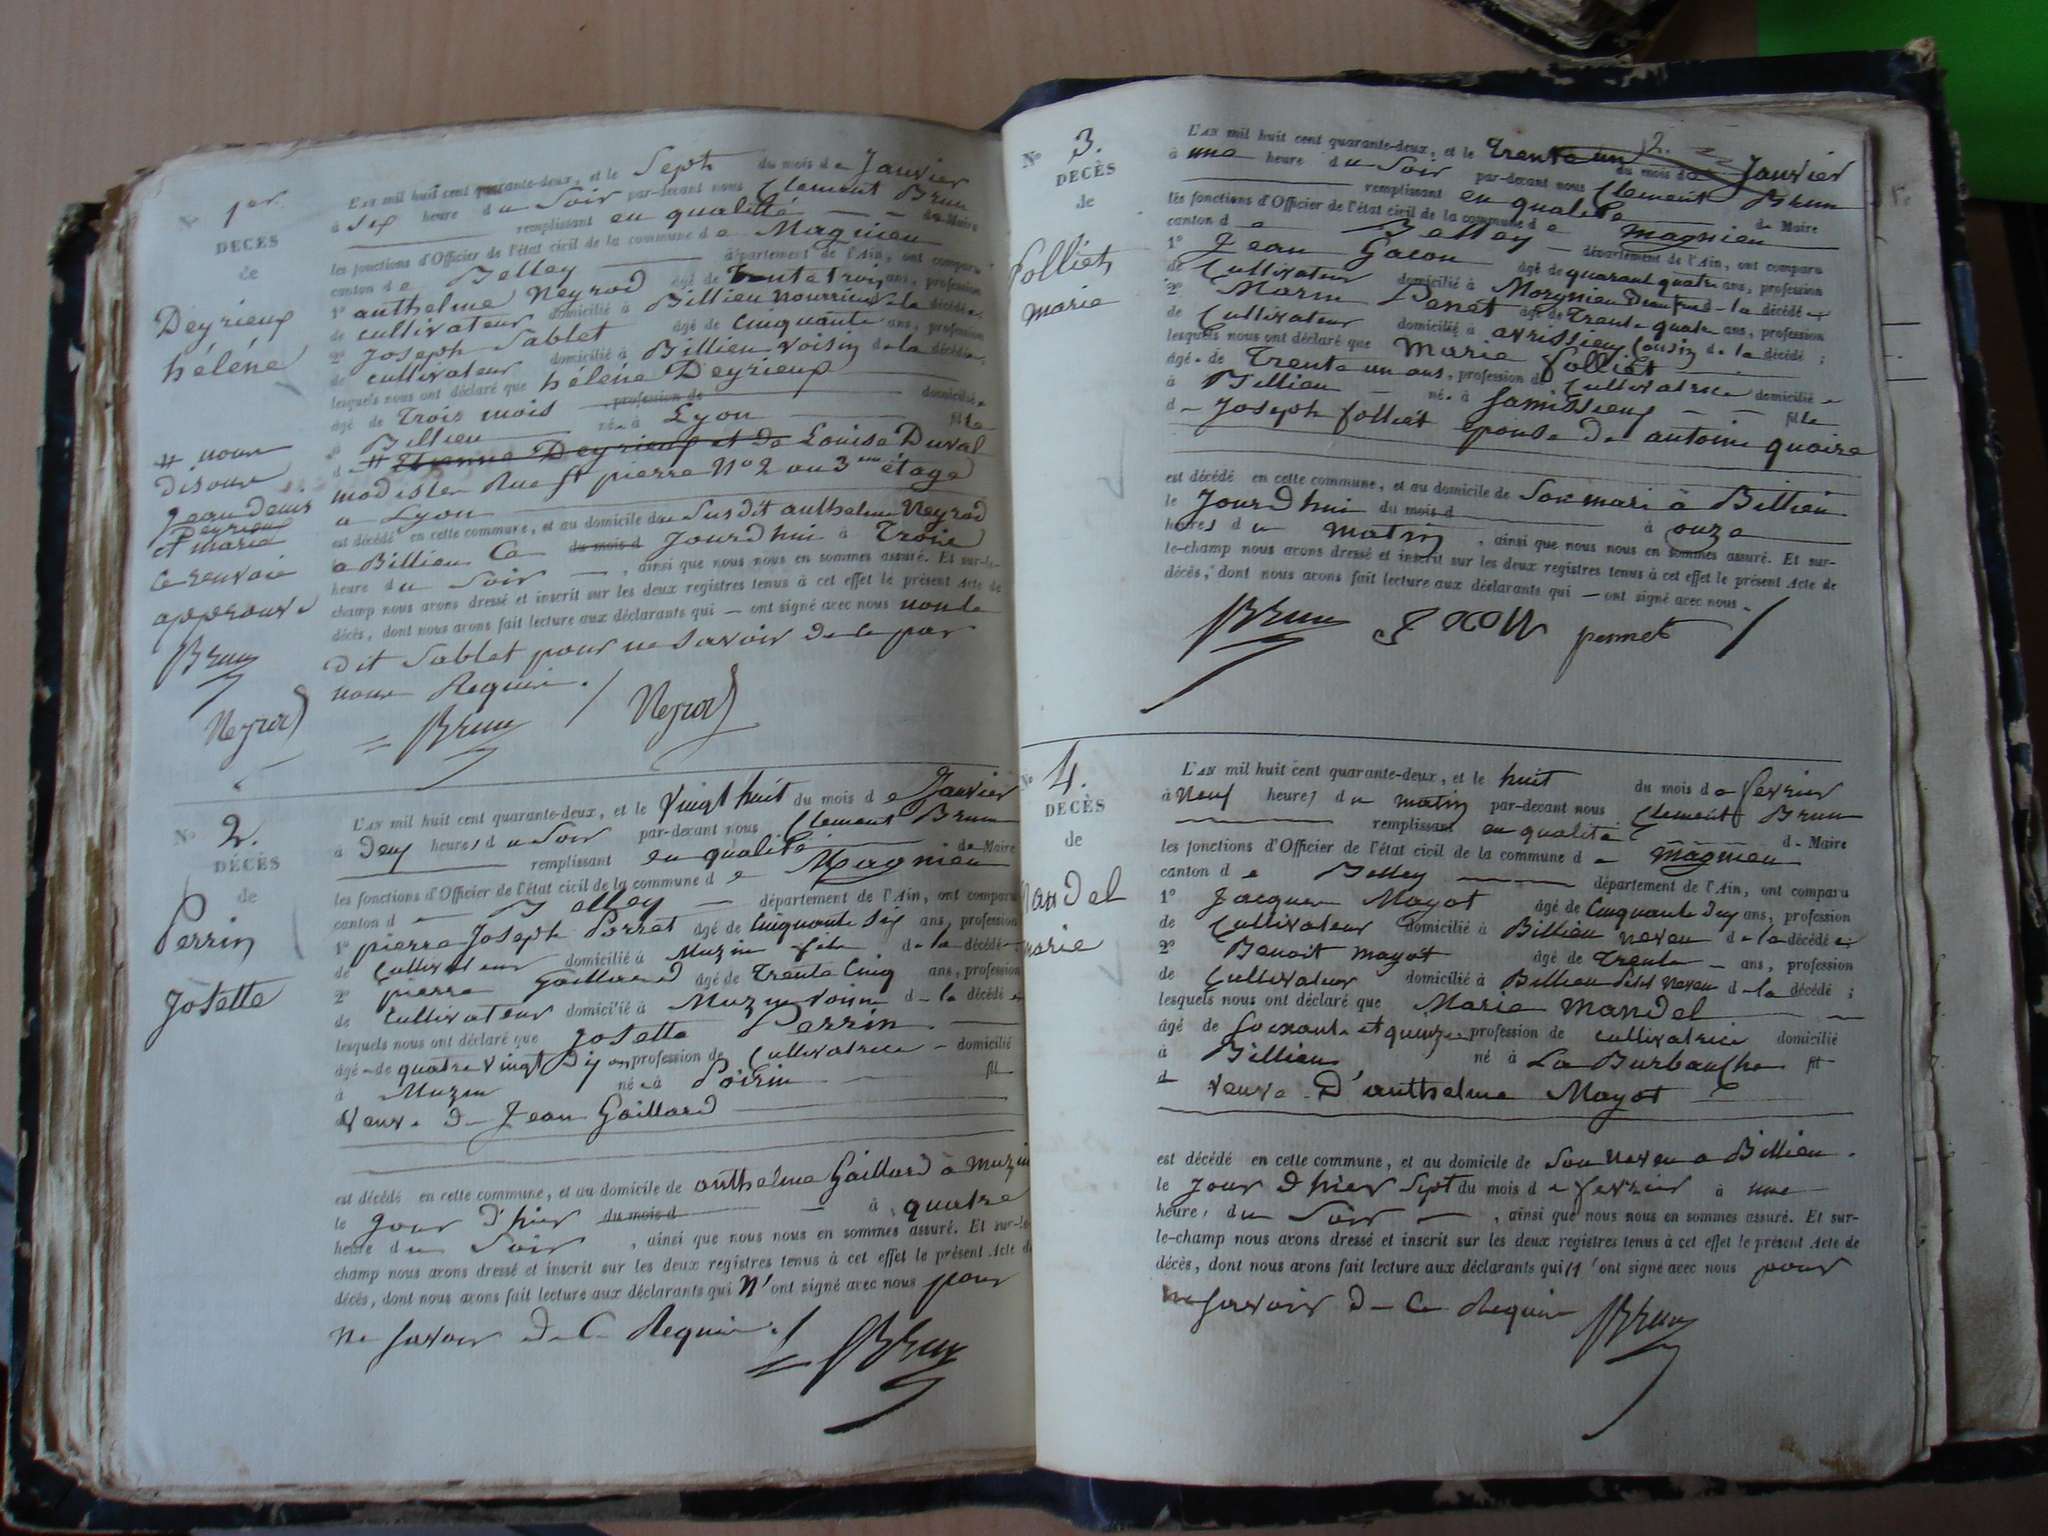 N° 1er
DECÈS
de
Deyrieux
héléne
# nous
disons
jean denis
Deyrieux
et marie
Ce renvoie
approuvé
Brun
Neyrod
L'AN mil huit cent quarante-deux, et le Sept du mois de Janvier
à six heure du Soir par-devant nous Clement Brun
remplissant en qualité de Maire
les fonctions d'Officier de l'état civil de la commune de Magnieu
canton de Belley département de l'Ain, ont comparu
1° anthelme Neyrod âgé de trente trois ans, profession
de cultivateur domicilié à Billieu nourricier de la décédée
2° Joseph Sablet âgé de Cinquante ans, profession
de cultivateur domicilié à Billieu voisin de la décédée;
lesquels nous ont déclaré que héléne Deyrieux
âgé de Trois mois profession de domiciliée
à Billieu née à Lyon fille
d # Etienne Deyrieux et de Louise Duval
modiste Rue St pierre N° 2 au 3me étage
a Lyon
est décédé en cette commune, et au domicile du Susdit anthelme Neyrod
a Billieu Ce du mois d Jourd'hui à Trois
heure du Soir, ainsi que nous nous en sommes assuré. Et sur-le-
champ nous avons dressé et inscrit sur les deux registres tenus à cet effet le présent Acte de
décès, dont nous avons fait lecture aux déclarants qui — ont signé avec nous non le
dit Sablet pour ne savoir de ce par
nous Requis.
Brun Neyrod
N° 2.
DÉCÈS
de
Perrin
Josette
L'AN mil huit cent quarante-deux, et le Vingt huit du mois de Janvier
à Deux heures du Soir par-devant nous Clement Brun
remplissant en qualité de Maire
les fonctions d'Officier de l'état civil de la commune de Magnieu
canton d Belley département de l'Ain, ont comparu
1° pierre Joseph Porret âgé de Cinquante Six ans, profession
de Cultivateur domicilié à Muzin de la décédée
2° pierre Gaillard âgé de Trente Cinq ans, profession
de Cultivateur domicilié à Muzin voisin d la décédée
lesquels nous ont déclaré que Josette Perrin
âgé de quatre vingt Dix ans profession de Cultivatrice domicilié
à Muzin née à Poirin fil
Veuve de Jean Gaillard
est décédé en cette commune, et au domicile de anthelme Gaillard a Muzin
le Jour d'hier du mois d à quatre
heure du Soir, ainsi que nous nous en sommes assuré. Et sur-le-
champ nous avons dressé et inscrit sur les deux registres tenus à cet effet le présent Acte de
décès, dont nous avons fait lecture aux déclarants qui n'ont signé avec nous pour
ne savoir de Ce Requis.
Brun
N° 3.
DECÈS
de
folliet
marie
2.
L'AN mil huit cent quarante-deux, et le Trente un du mois de Janvier
à une heure du Soir par-devant nous Clement Brun
remplissant en qualité de Maire
les fonctions d'Officier de l'état civil de la commune de magnieu
canton de Belley département de l'Ain, ont comparu
1° Jean Gacon âgé de quarant quatre ans, profession
de Cultivateur domicilié à la décédée
2° Marin Penet âgé de Trente quatre ans, profession
de Cultivateur domicilié à avrissieux Cousin de la décédé;
lesquels nous ont déclaré que Marie folliet
âgé de Trente un ans, profession de Cultivatrice domicilié
à Billieu née à fille
d Joseph folliet epouse de antoine quaire
est décédé en cette commune, et au domicile de Son mari à Billieu
le Jourd'hui du mois d à onze
heures du matin, ainsi que nous nous en sommes assuré. Et sur-
le-champ nous avons dressé et inscrit sur les deux registres tenus à cet effet le présent Acte de
décès, dont nous avons fait lecture aux déclarants qui — ont signé avec nous.
Brun pennet
N° 4.
DECÈS
de
Mandel
marie
L'AN mil huit cent quarante-deux, et le huit du mois de fevrier
à Neuf heures du matin par-devant nous Clement Brun
remplissant en qualité d Maire
les fonctions d'Officier de l'état civil de la commune de magnieu
canton de Belley département de l'Ain, ont comparu
1° Jacques Mayot âgé de Cinquante Deux ans, profession
de Cultivateur domicilié à Billieu neveu de la décédée
2° Benoit mayot âgé de Trente ans, profession
de Cultivateur domicilié à Billieu petit Neveu d la décédé;
lesquels nous ont déclaré que Marie Mandel
âgé de Soixante et quinze profession de cultivatrice domicilié
à Billieu né à La Burbanche fil
d veuve D'anthelme Mayot
est décédé en cette commune, et au domicile de Son neveu a Billieu.
le Jour D'hier Sept du mois de fevrier à une
heure, du Soir, ainsi que nous nous en sommes assuré. Et sur-
le-champ nous avons dressé et inscrit sur les deux registres tenus à cet effet le présent Acte de
décès, dont nous avons fait lecture aux déclarants qui n'ont signé avec nous pour
ne savoir de Ce Requis Brun